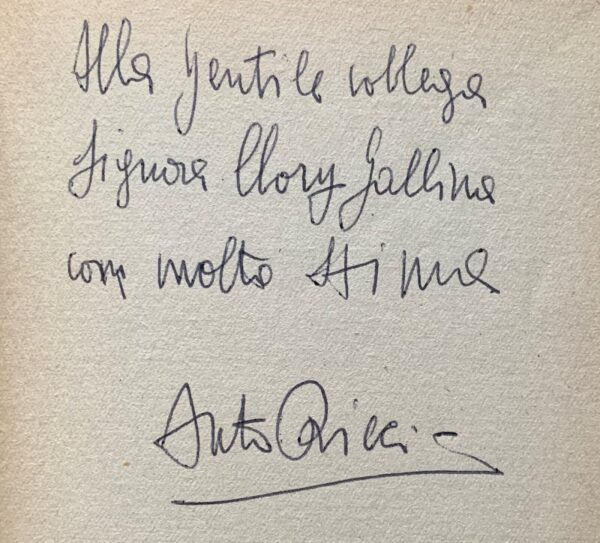 Alla Gentile collega
Signora Clory Gallina
con molta stima
Anto Ricci